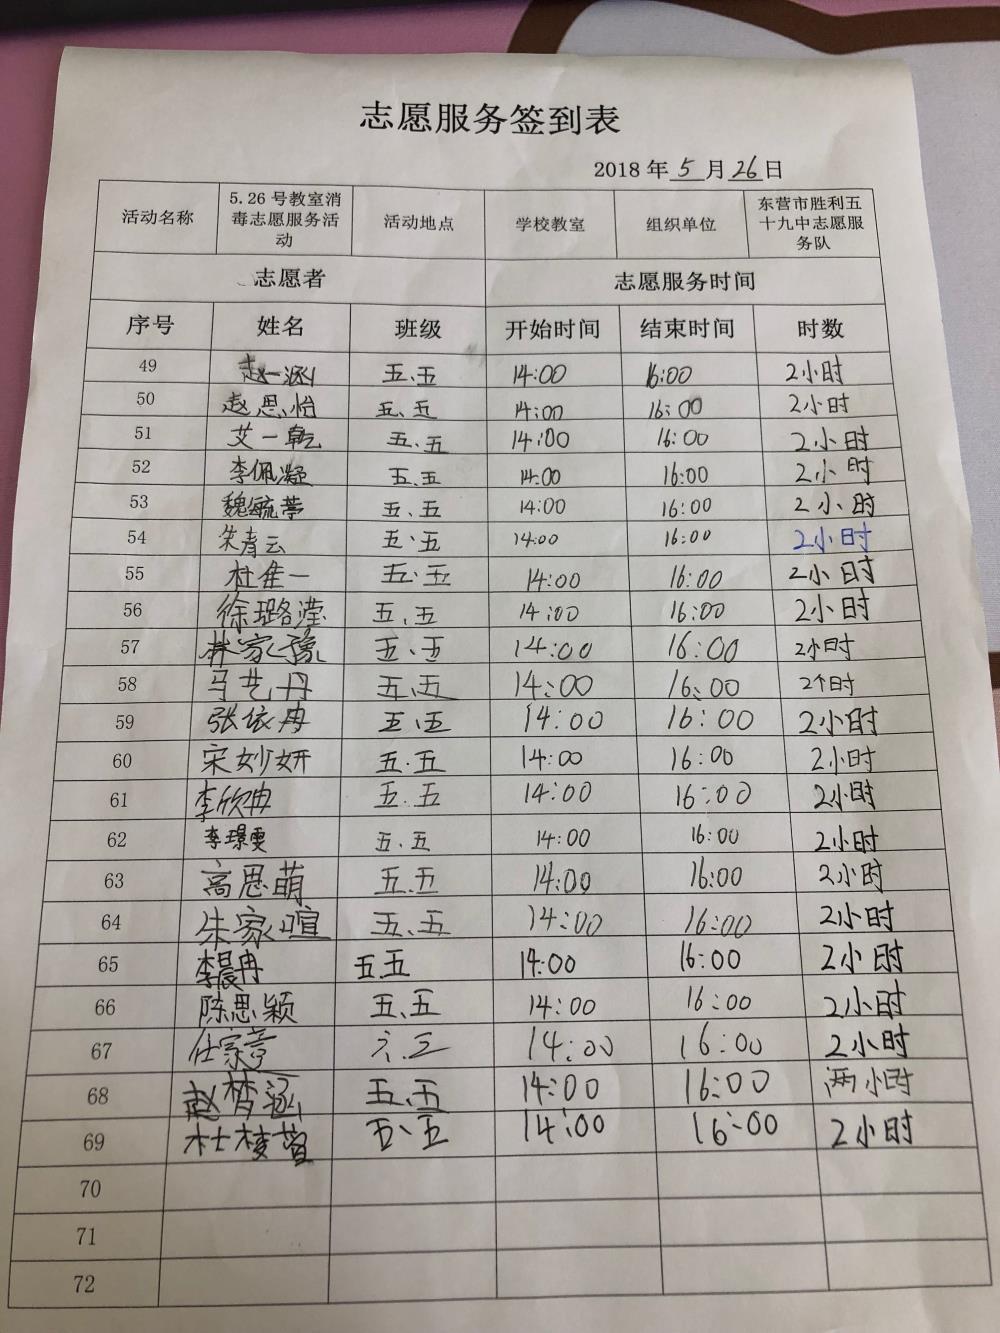 志愿服务签到表
2018 年 5 月 26 日
活动名称 5.26 号教室消毒志愿服务活动 活动地点 学校教室 组织单位 东营市胜利五十九中志愿服务队
志愿者 志愿服务时间
序号 姓名 班级 开始时间 结束时间 时数
49 赵一涵 五、五 14:00 16:00 2小时
50 赵思怡 五、五 14:00 16:00 2小时
51 艾一乾 五、五 14:00 16:00 2小时
52 李佩凝 五、五 14:00 16:00 2小时
53 魏毓葶 五、五 14:00 16:00 2小时
54 朱春云 五、五 14:00 16:00 2小时
55 杜佳一 五、五 14:00 16:00 2小时
56 徐璐滢 五、五 14:00 16:00 2小时
57 林家豫 五、五 14:00 16:00 2小时
58 马艺丹 五、五 14:00 16:00 2个时
59 张依冉 五、五 14:00 16:00 2小时
60 宋妙妍 五.五 14:00 16:00 2小时
61 李欣冉 五.五 14:00 16:00 2小时
62 李璟雯 五.五 14:00 16:00 2小时
63 高思萌 五.五 14:00 16:00 2小时
64 朱家暄 五、五 14:00 16:00 2小时
65 李晨冉 五.五 14:00 16:00 2小时
66 陈思颖 五、五 14:00 16:00 2小时
67 任宗 六.三 14:00 16:00 2小时
68 赵梦涵 五、五 14:00 16:00 两小时
69 杜棱 五、五 14:00 16:00 2小时
70
71
72